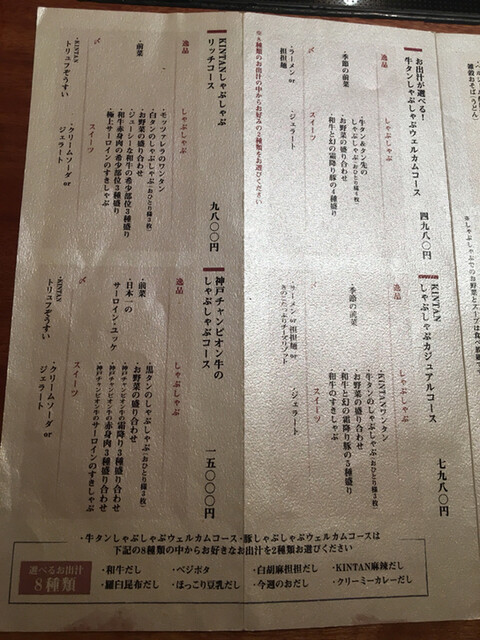 雑穀おそば(うどん)
お出汁が選べる!
牛タンしゃぶしゃぶウェルカムコース
四九八〇円
逸品
・季節の前菜
しゃぶしゃぶ
・牛タン&タン先の
しゃぶしゃぶ(おひとり様4枚)
・お野菜の盛り合わせ
・和牛と幻の霜降り豚の4種盛り
〆
・ラーメン or
担担麺
スイーツ
・ジェラート
※8種類のお出汁の中からお好みの2種類をお選びください
KINTANしゃぶしゃぶ
リッチコース
九八〇〇円
逸品
・前菜
しゃぶしゃぶ
・モッツァレラのワンタン
・白タンのしゃぶしゃぶ(おひとり様3枚)
・お野菜の盛り合わせ
・ジューシーな和牛の希少部位3種盛り
・和牛赤身肉の希少部位3種盛り
・極上サーロインのすきしゃぶ
〆
・KINTAN
トリュフぞうすい
スイーツ
・クリームソーダ or
ジェラート
KINTAN
しゃぶしゃぶカジュアルコース
七九八〇円
逸品
・季節の前菜
しゃぶしゃぶ
・KINTANワンタン
・牛タンのしゃぶしゃぶ(おひとり様3枚)
・お野菜の盛り合わせ
・和牛と幻の霜降り豚の5種盛り
・和牛のすきしゃぶ
〆
・ラーメン or 担担麺 or
きのこたっぷりチーズリゾット
スイーツ
・ジェラート
神戸チャンピオン牛の
しゃぶしゃぶコース
一五〇〇〇円
逸品
・前菜
・日本一の
サーロイン・ユッケ
しゃぶしゃぶ
・黒タンのしゃぶしゃぶ(おひとり様3枚)
・お野菜の盛り合わせ
・神戸チャンピオン牛の霜降り3種盛り合わせ
・神戸チャンピオン牛の赤身肉3種盛り合わせ
・神戸チャンピオン牛のサーロインのすきしゃぶ
〆
・KINTAN
トリュフぞうすい
スイーツ
・クリームソーダ or
ジェラート
・牛タンしゃぶしゃぶウェルカムコース・豚しゃぶしゃぶウェルカムコースは
下記の8種類の中からお好きなお出汁を2種類お選びください
選べるお出汁
8種類
・和牛だし
・ベジポタ
・白胡麻担担だし
・KINTAN麻辣だし
・羅臼昆布だし
・ほっこり豆乳だし
・今週のおだし
・クリーミーカレーだし